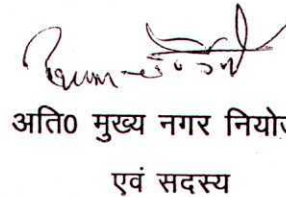 अति0 मुख्य नगर नियो
एवं सदस्य